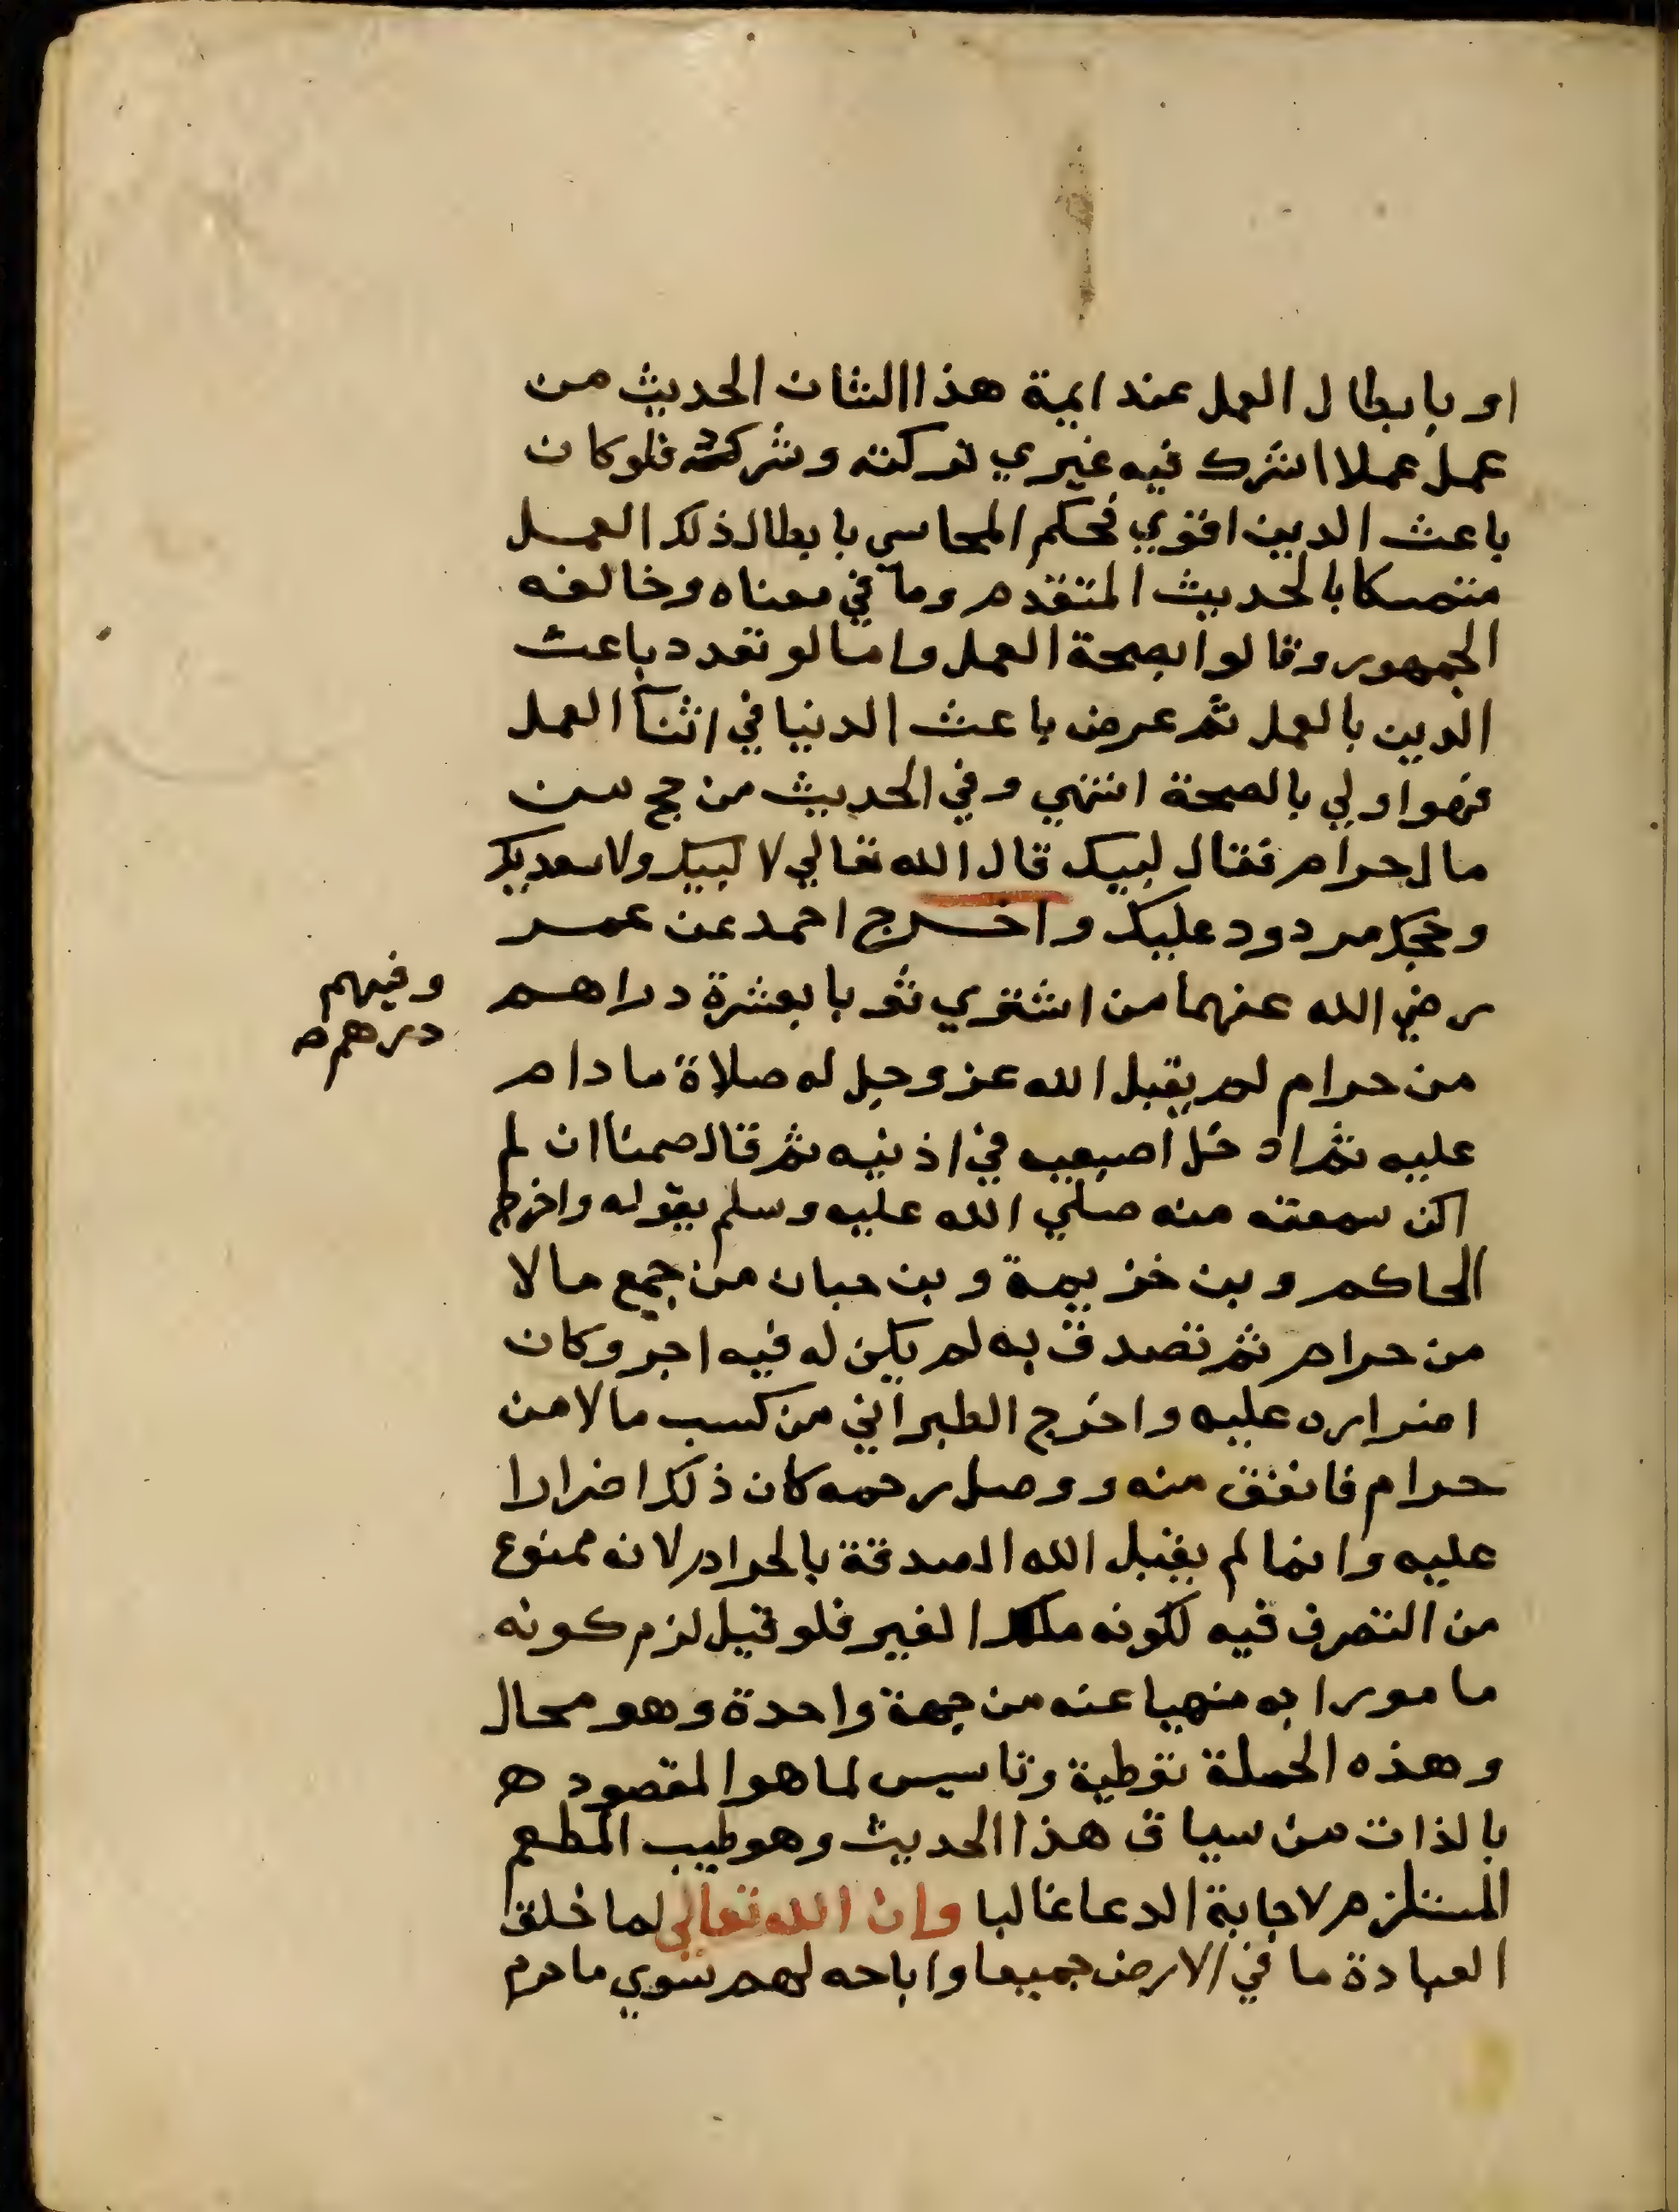 او بابطال العمل عند ايمة هذا الشان الحديث من
عمل عملا اشرك فيه غيري تركته وشركته فلو كان
باعث الدين اقوي فحكم المحاسبي بابطال ذلك العمل
متمسكا بالحديث المتقدم وما في معناه وخالفه
الجمهور وقالوا بصحة العمل واما لو تعدد باعث
الدين بالعمل ثم عرض باعث الدنيا في اثنآ العمل
فهو اولي بالصحة انتهي وفي الحديث من حج من
مال حرام فقال لبيك قال الله تعالي لا لبيك ولا سعديك
وحجك مردود عليك واخرج احمد عن عمر
رضي الله عنهما من اشتري ثوبا بعشرة دراهم
وفيهم
درهم صـ
من حرام لم يقبل الله عز وجل له صلاة ما دام
عليه ثم ادخل اصبعيه في اذنيه ثم قال صمتا ان لم
اكن سمعته منه صلي الله عليه وسلم يقوله واخرج
الحاكم وبن خزيمة وبن حبان من جمع مالا
من حرام ثم تصدق به لم يكن له فيه اجر وكان
اضراره عليه واخرج الطبراني من كسب مالا من
حرام فانفق منه ووصل رحمه كان ذلك اضرارا
عليه وانما لم يقبل الله الصدقة بالحرام لانه ممنوع
من التصرف فيه لكونه ملك الغير فلو قبل لزم كونه
مامورا به منهيا عنه من جهة واحدة وهو محال
وهذه الجملة توطية وتاسيس لما هو المقصود هـ
بالذات من سياق هذا الحديث وهو طيب المطعم
المستلزم لاجابة الدعا غالبا وان الله تعالي لما خلق
العبادة ما في الارض جميعا واباحه لهم سوي ما حرم